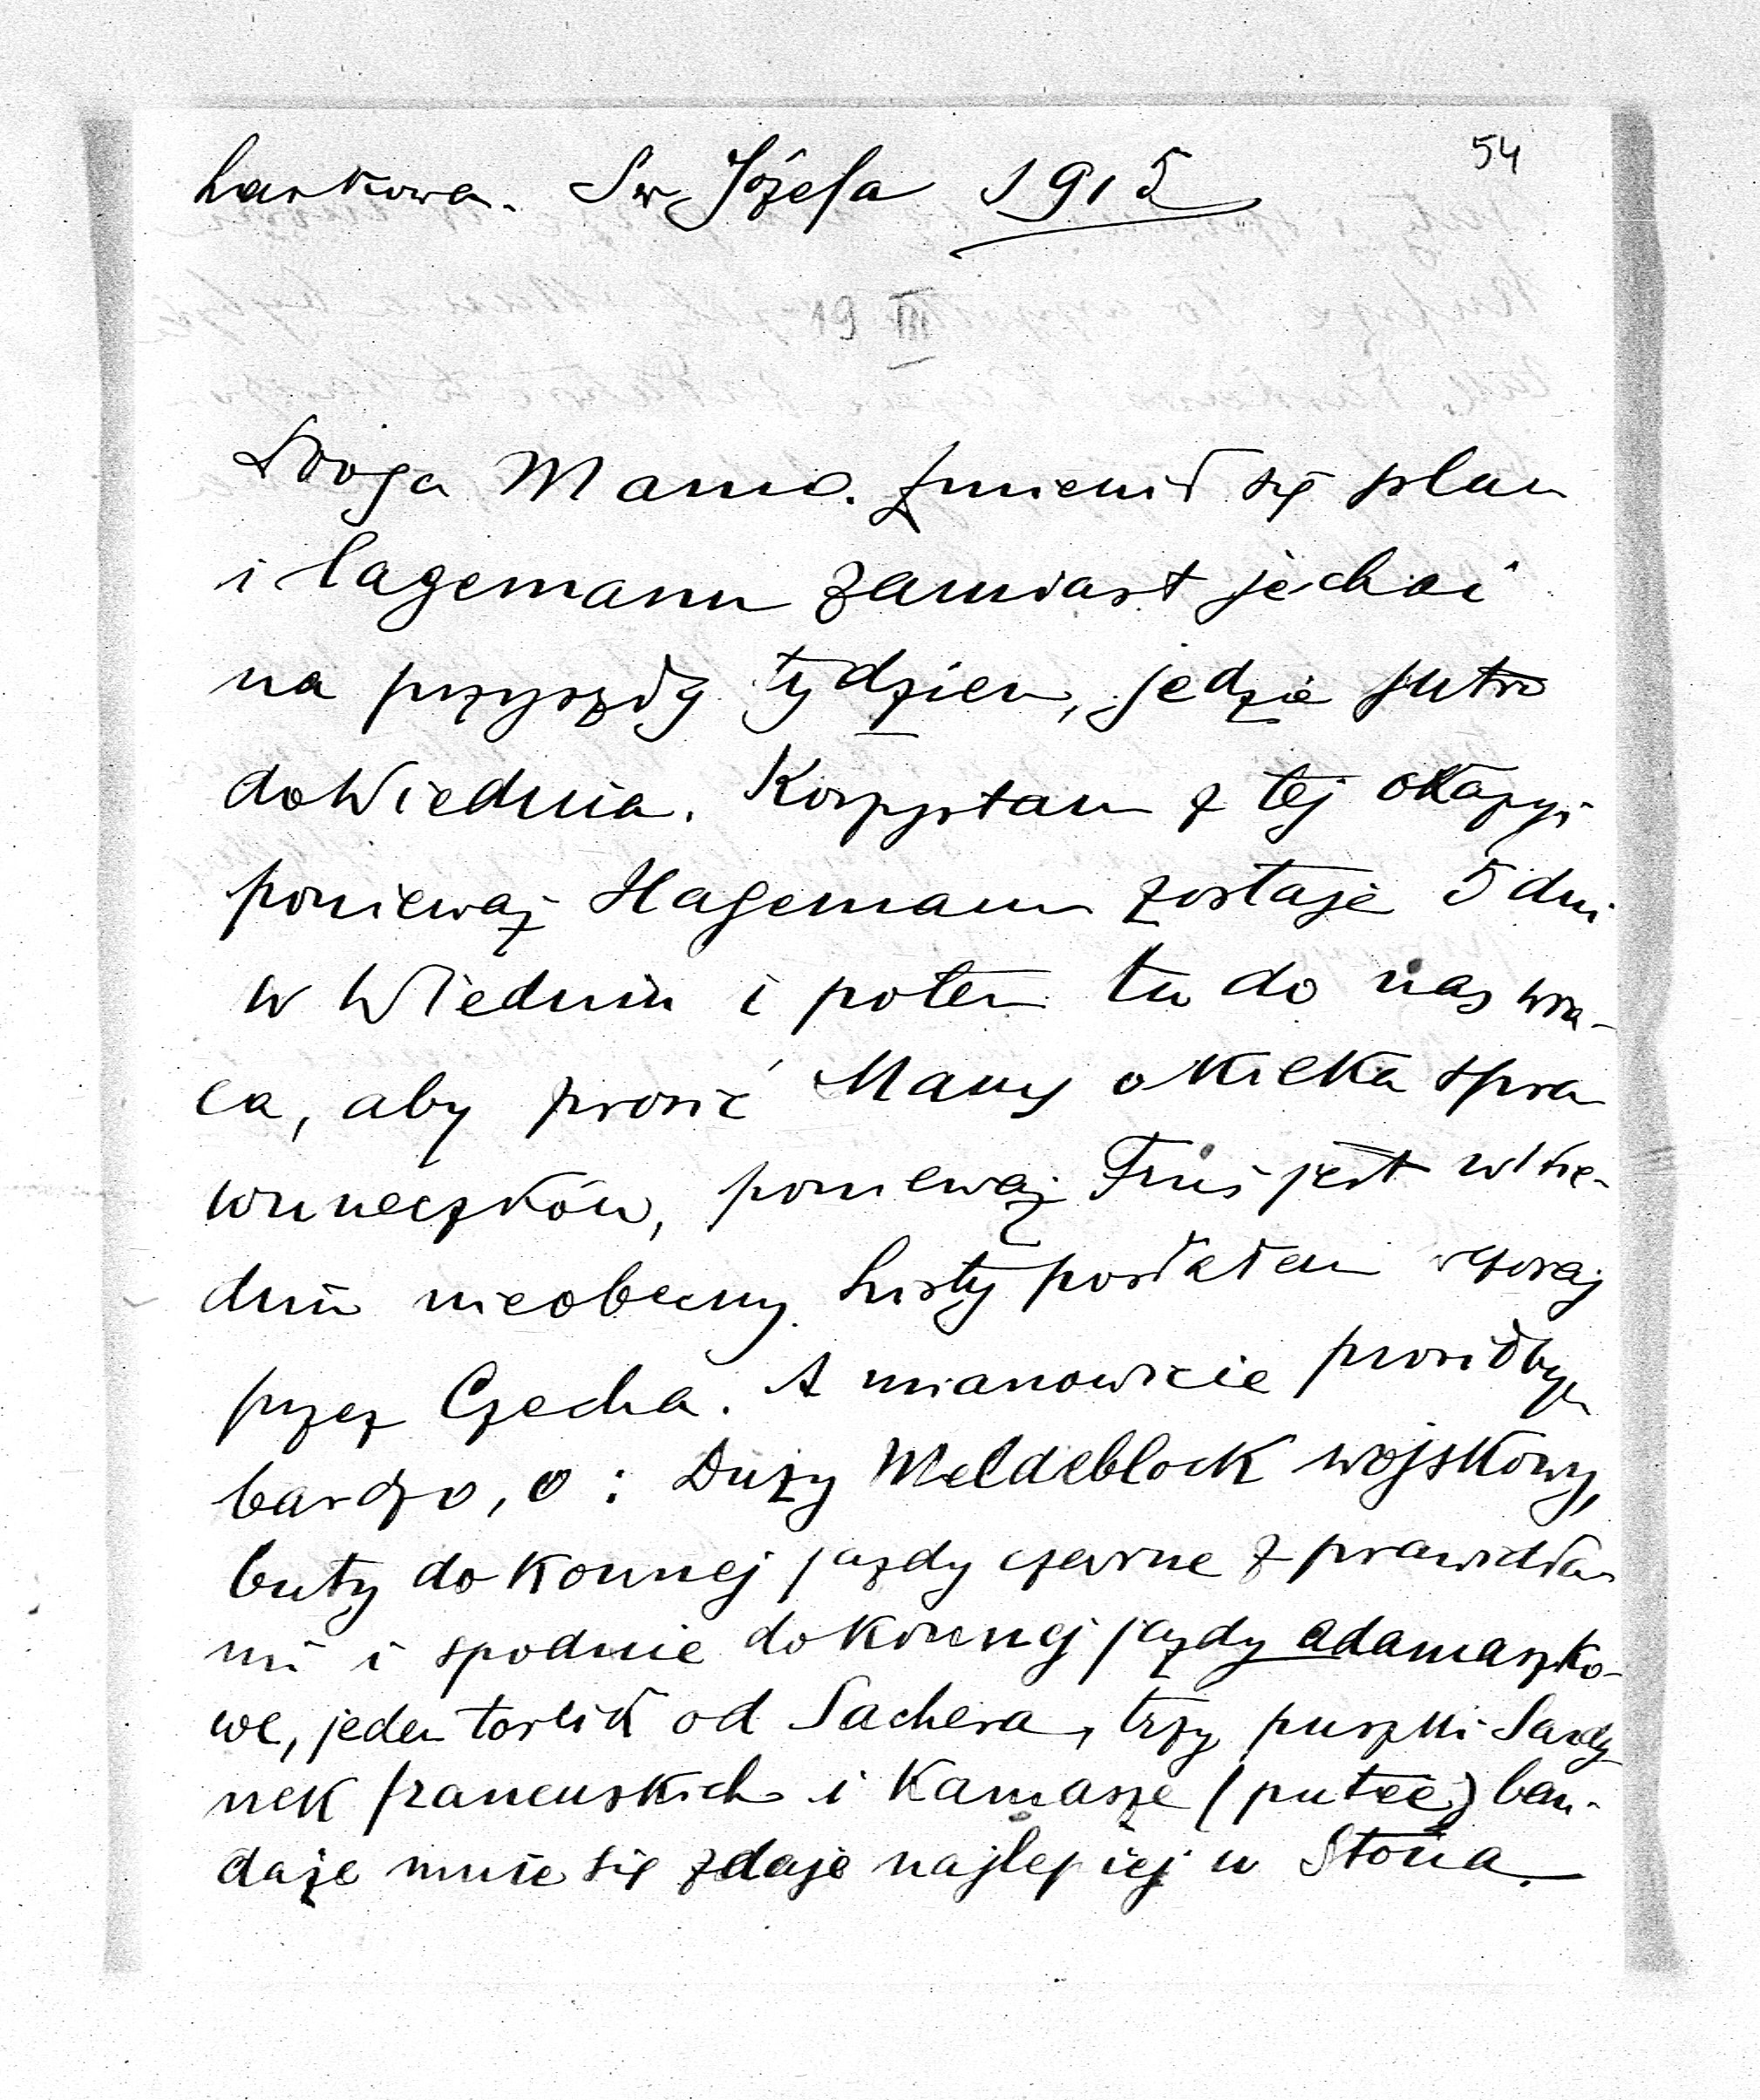 54
Laskowa. Św Józefa 1915
19 III
Droga Mamo. Zmienił się plan
i Hagemann zamiast jechać
na przyszły tydzien, jedzie jutro
do Wiednia. Korzystam z tej okazyi
ponieważ Hagemann zostaje 5 dni
w Wiedniu i potem tu do nas wra-
ca, aby prosić Mamy o kilka spra
wuneczków, ponieważ jest w Wie-
dniu nieobecny. Listy posłałem wczoraj
przez Czecha. A mianowicie prosiłbym
bardzo, o: Duży Meldeblock wojskowy,
buty do konnej jazdy czarne z prawidła
mi i spodnie do konnej jazdy adamaszko-
we, jeden torcik od Sachera, trzy puszki Sardy
nek francuskich i Kamasze (putee) ban-
daże mnie się zdaje najlepiej u Stona.